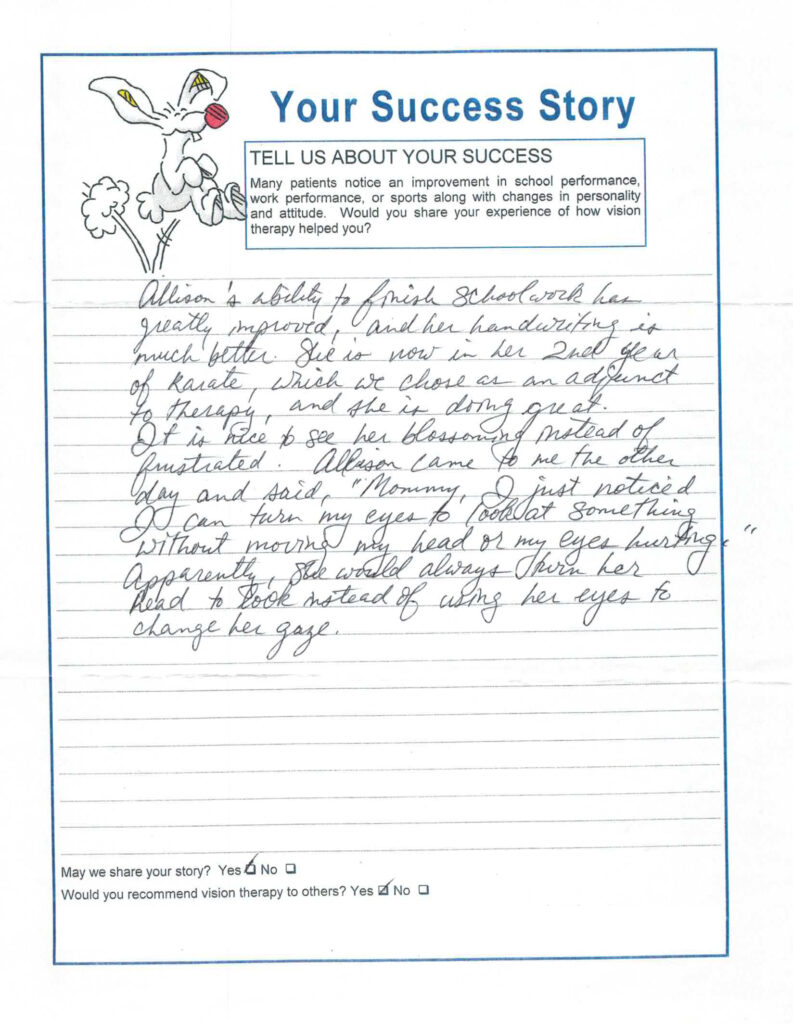 Your Success Story
TELL US ABOUT YOUR SUCCESS
Many patients notice an improvement in school performance,
work performance, or sports along with changes in personality
and attitude. Would you share your experience of how vision
therapy helped you?
Allison's ability to finish schoolwork has
greatly improved, and her handwriting is
much better. She is now in her 2nd year
of karate, which we chose as an adjunct
to therapy, and she is doing great.
It is nice to see her blossoming instead of
frustrated. Allison came to me the other
day and said, "Mommy, I just noticed
I can turn my eyes to look at something
without moving my head or my eyes hurting."
Apparently, she would always turn her
head to look instead of using her eyes to
change her gaze.
May we share your story? Yes ☑ No ☐
Would you recommend vision therapy to others? Yes ☑ No ☐